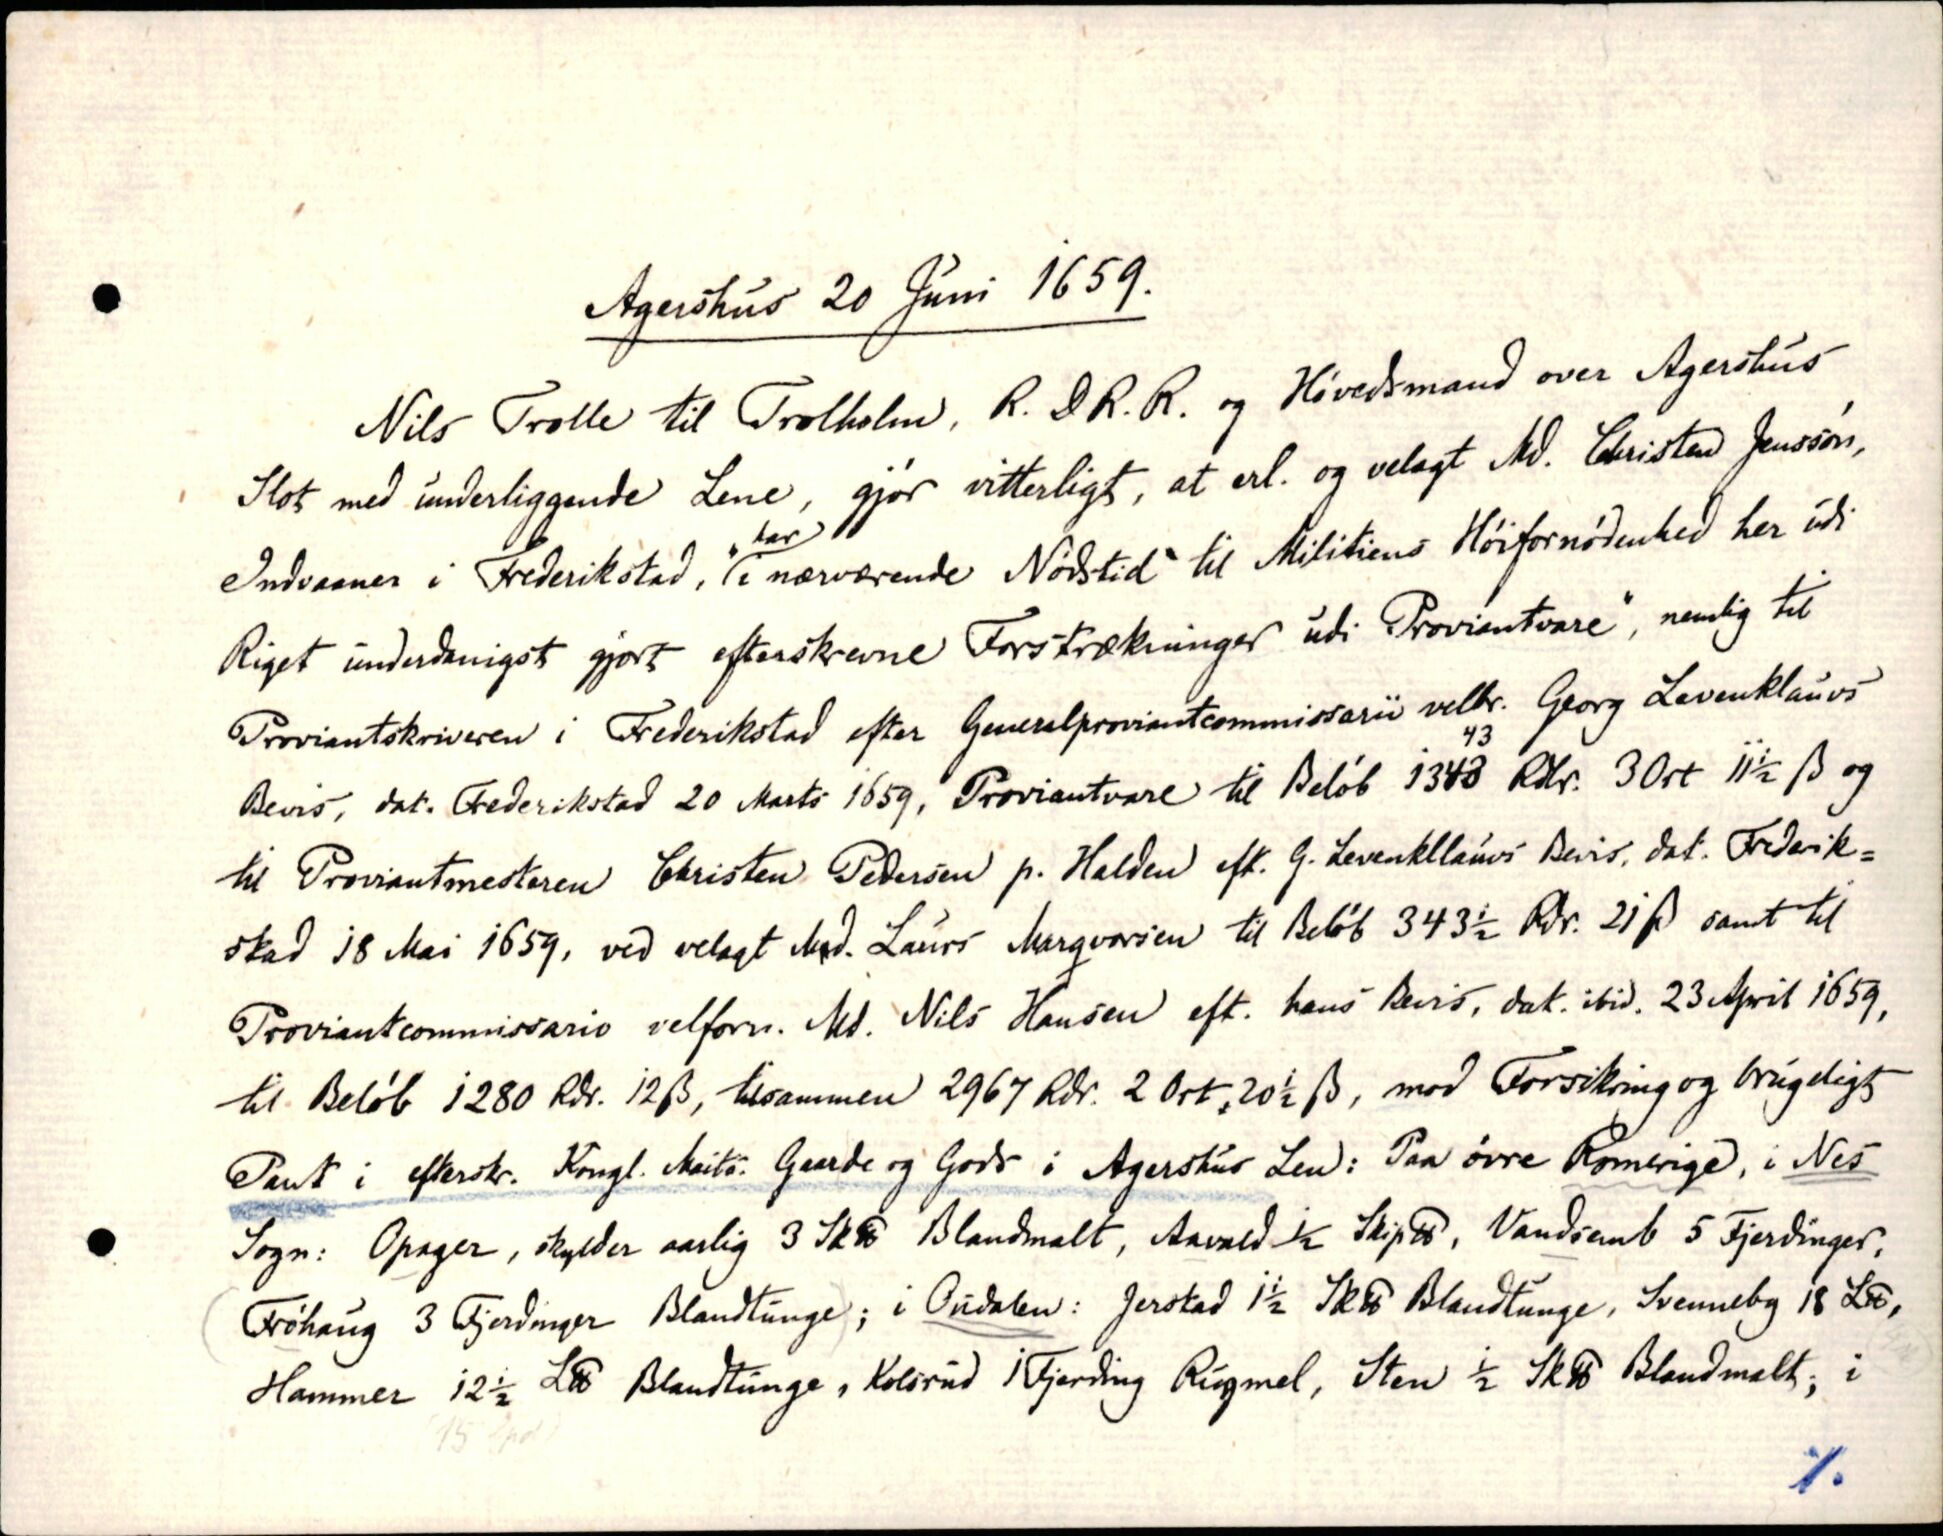 Agershus 20 Juni 1659.
Nils Trolle til Trolholm, R. D R. R. og Hövedsmand over Agershus
Slot med underliggende Lene, gjör vitterligt, at erl. og velagt Md. Christen Jenssön,
har
Indvaaner i Frederikstad, "i nærværende Nödstid til Militiens Höifornödenhed her udi
Riget underdanigst gjort efterskrevne Forstrækninger udi Proviantvare", nemlig til
Proviantskriveren i Frederikstad efter Generalproviantcommissarii velbr. Georg Levenklauvs
43
Bevis, dat. Frederikstad 20 Marts 1659, Proviantvare til Belöb 1348 Rdlr. 3 Ort 11½ ß og
til Proviantmesteren Christen Pedersen p. Halden eft. G. Levenkllauvs Bevis, dat. Frederik=
stad 18 Mai 1659, ved velagt Md. Laurs Marqvorsen til Belöb 343½ Rdr. 21 ß samt til
Proviantcommissario velforn. Md. Nils Hansen eft. hans Bevis, dat. ibid. 23 April 1659,
til Belöb 1280 Rdr. 12 ß, tilsammen 2967 Rdr. 2 Ort, 20½ ß, mod Forsikring og brugeligt
Pant i efterskr. Kongl. Maits. Gaarde og Gods i Agershus Len: Paa övre Romerige, i Nes
Sogn: Opager, skylder aarlig 3 Sk℔ Blandmalt, Aavald ½ Skip℔, Vandsemb 5 Fjerdinger,
(Fröhaug 3 Fjerdinger Blandtunge); i Oudalen: Jerstad 1½ Sk℔ Blandtunge, Svenneby 18 L℔,
Hammer 12½ L℔ Blandtunge, Kolsrud 1 Fjerding Rugmel, Sten ½ Sk℔ Blandmalt; i
(15 Lpd)
⁒